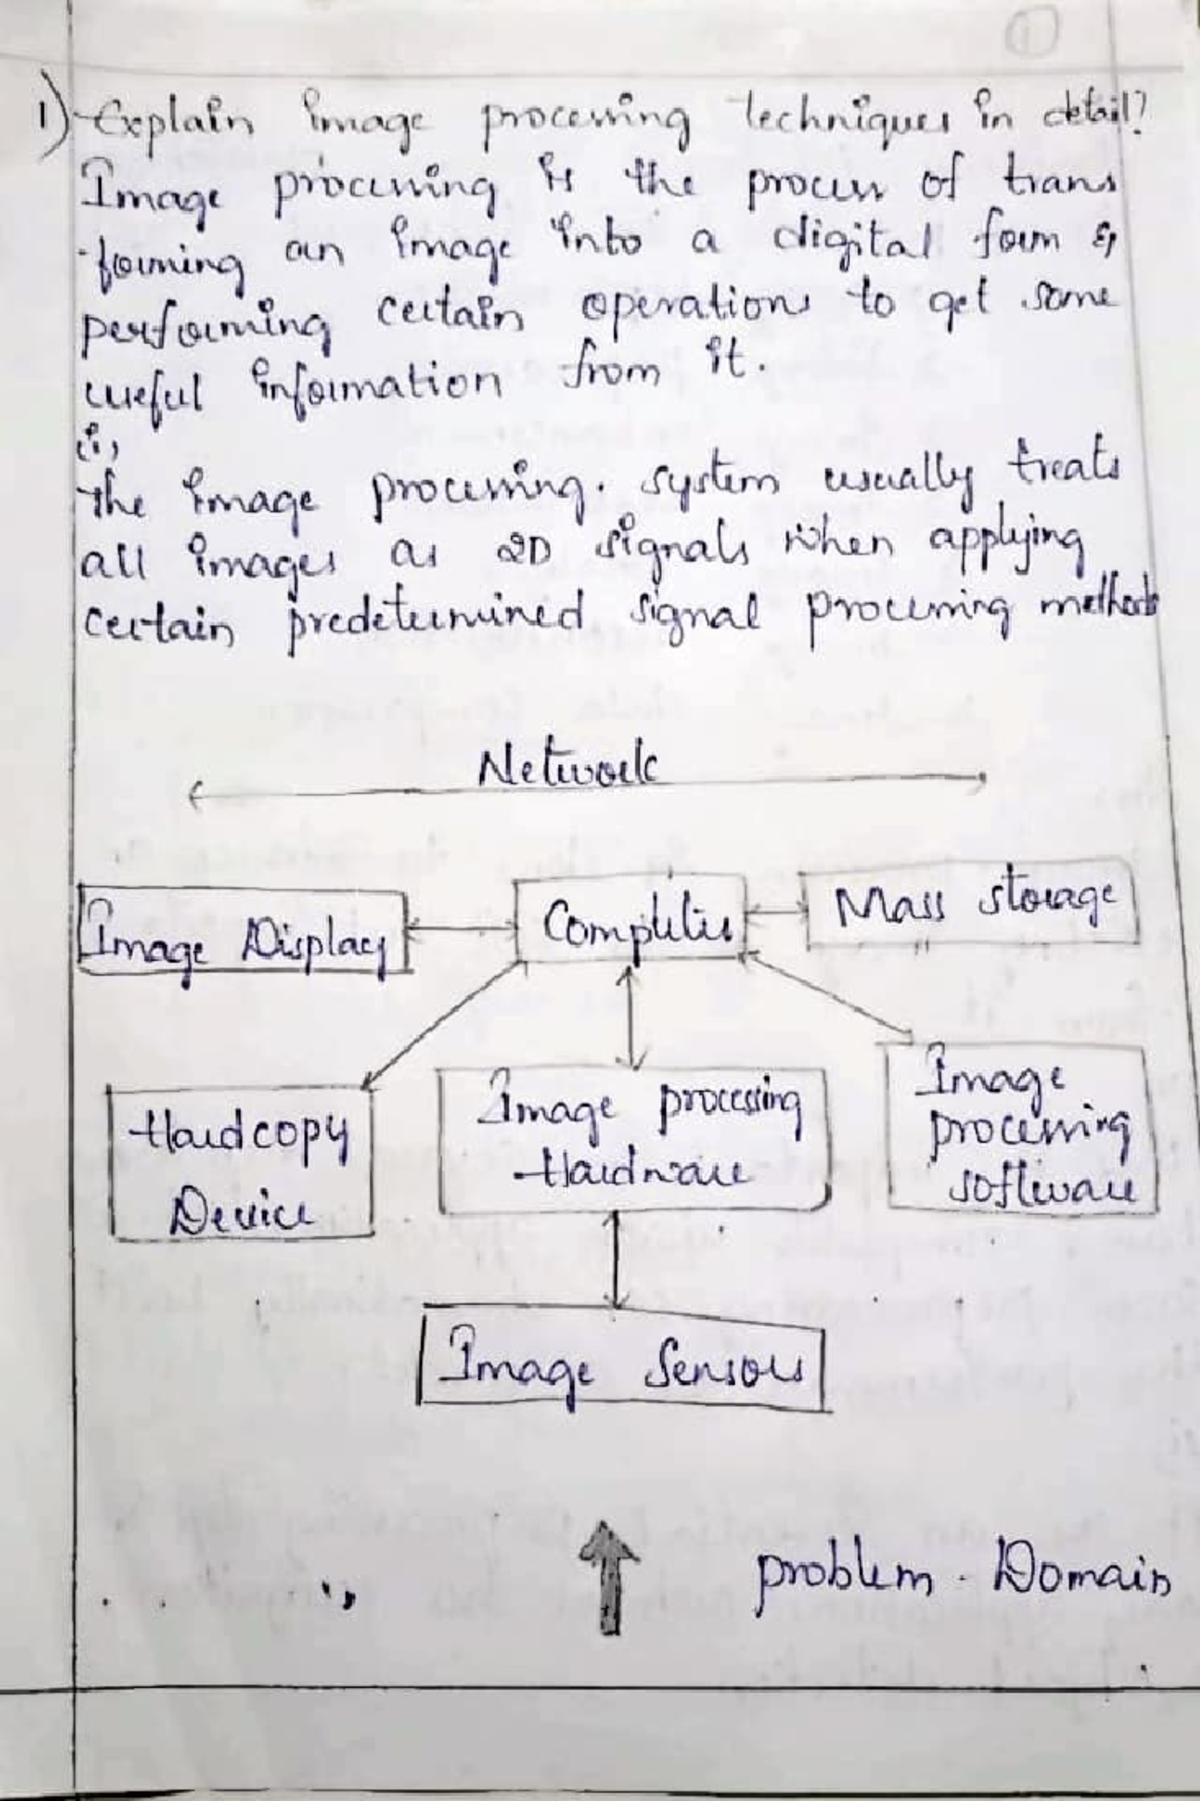 1
1) Explain image processing techniques in detail?
Image processing is the process of trans
-forming an image into a digital form &
performing certain operations to get some
useful information from it.
(i)
The image processing. system usually treats
all images as 2D signals when applying
certain predetermined signal processing methods
Network
Image Display
Computer
Mass storage
Hardcopy
Device
Image processing
Hardware
Image
processing
software
Image Sensors
problem - Domain